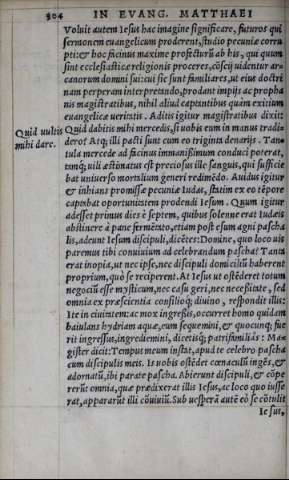 304 IN EVANG. MATTHAEI
Voluit autem Iesus hac imagine significare, futuros qui
sermonem euangelicum proderent, studio pecuniæ corru
pti: & hoc facinus maxime profecturũ ab his, qui quum
sint ecclesiasticæ religionis proceres, cõscij uidentur ar-
canorum domini sui: cui sic sunt familiares, ut eius doctri
nam perperam interpretando, prodant impijs ac propha
nis magistratibus, nihil aliud captantibus quàm exitium
euangelicæ ueritatis. Aditis igitur magistratibus dixit:
Quid uultis Quid dabitis mihi mercedis, si uobis eum in manus tradi-
mihi dare. dero? Atq; illi pacti sunt cum eo triginta denarijs. Tan-
tula mercede ad facinus immanissimum conduci poterat,
tamq; uili æstimatus est preciosus ille sanguis, qui suffecit
bat uniuerso mortalium generi redimẽdo. Auidus igitur
& inhians promissæ pecuniæ Iudas, statim ex eo tẽpore
captabat oportunitatem prodendi Iesum. Quum igitur
adesset primus dies è septem, quibus solenne erat Iudæis
abstinere à pane fermẽtato, etiam post esum agni pascha
lis, adeunt Iesum discipuli, dicẽtes: Domine, quo loco uis
paremus tibi conuiuium ad celebrandum pascha? Tanta
erat inopia, ut nec ipse, nec discipuli domiciliũ haberent
proprium, quò se reciperent. At Iesus ut ostẽderet totum
negociũ esse mysticum, nec casu geri, nec necessitate, sed
omnia ex præscientia consilioq; diuino, respondit illis:
Ite in ciuitatem: ac mox ingressis, occurret homo quidam
baiulans hydriam aquæ, eum sequemini, & quocunq; fue
rit ingressus, ingrediemini, dicetisq; patrifamiliâs: Ma-
gister dicit: Tempus meum instat, apud te celebro pascha
cum discipulis meis. Is uobis ostẽdet cœnaculũ ingẽs, &
adornatũ, ibi parate pascha. Abierunt discipuli, & cõpe
rerũt omnia, quæ prædixerat illis Iesus, ac loco quo iusse
rat, apparârũt illi cõuiuiũ. Sub uesperã autẽ eò se cõtulit
Iesus,